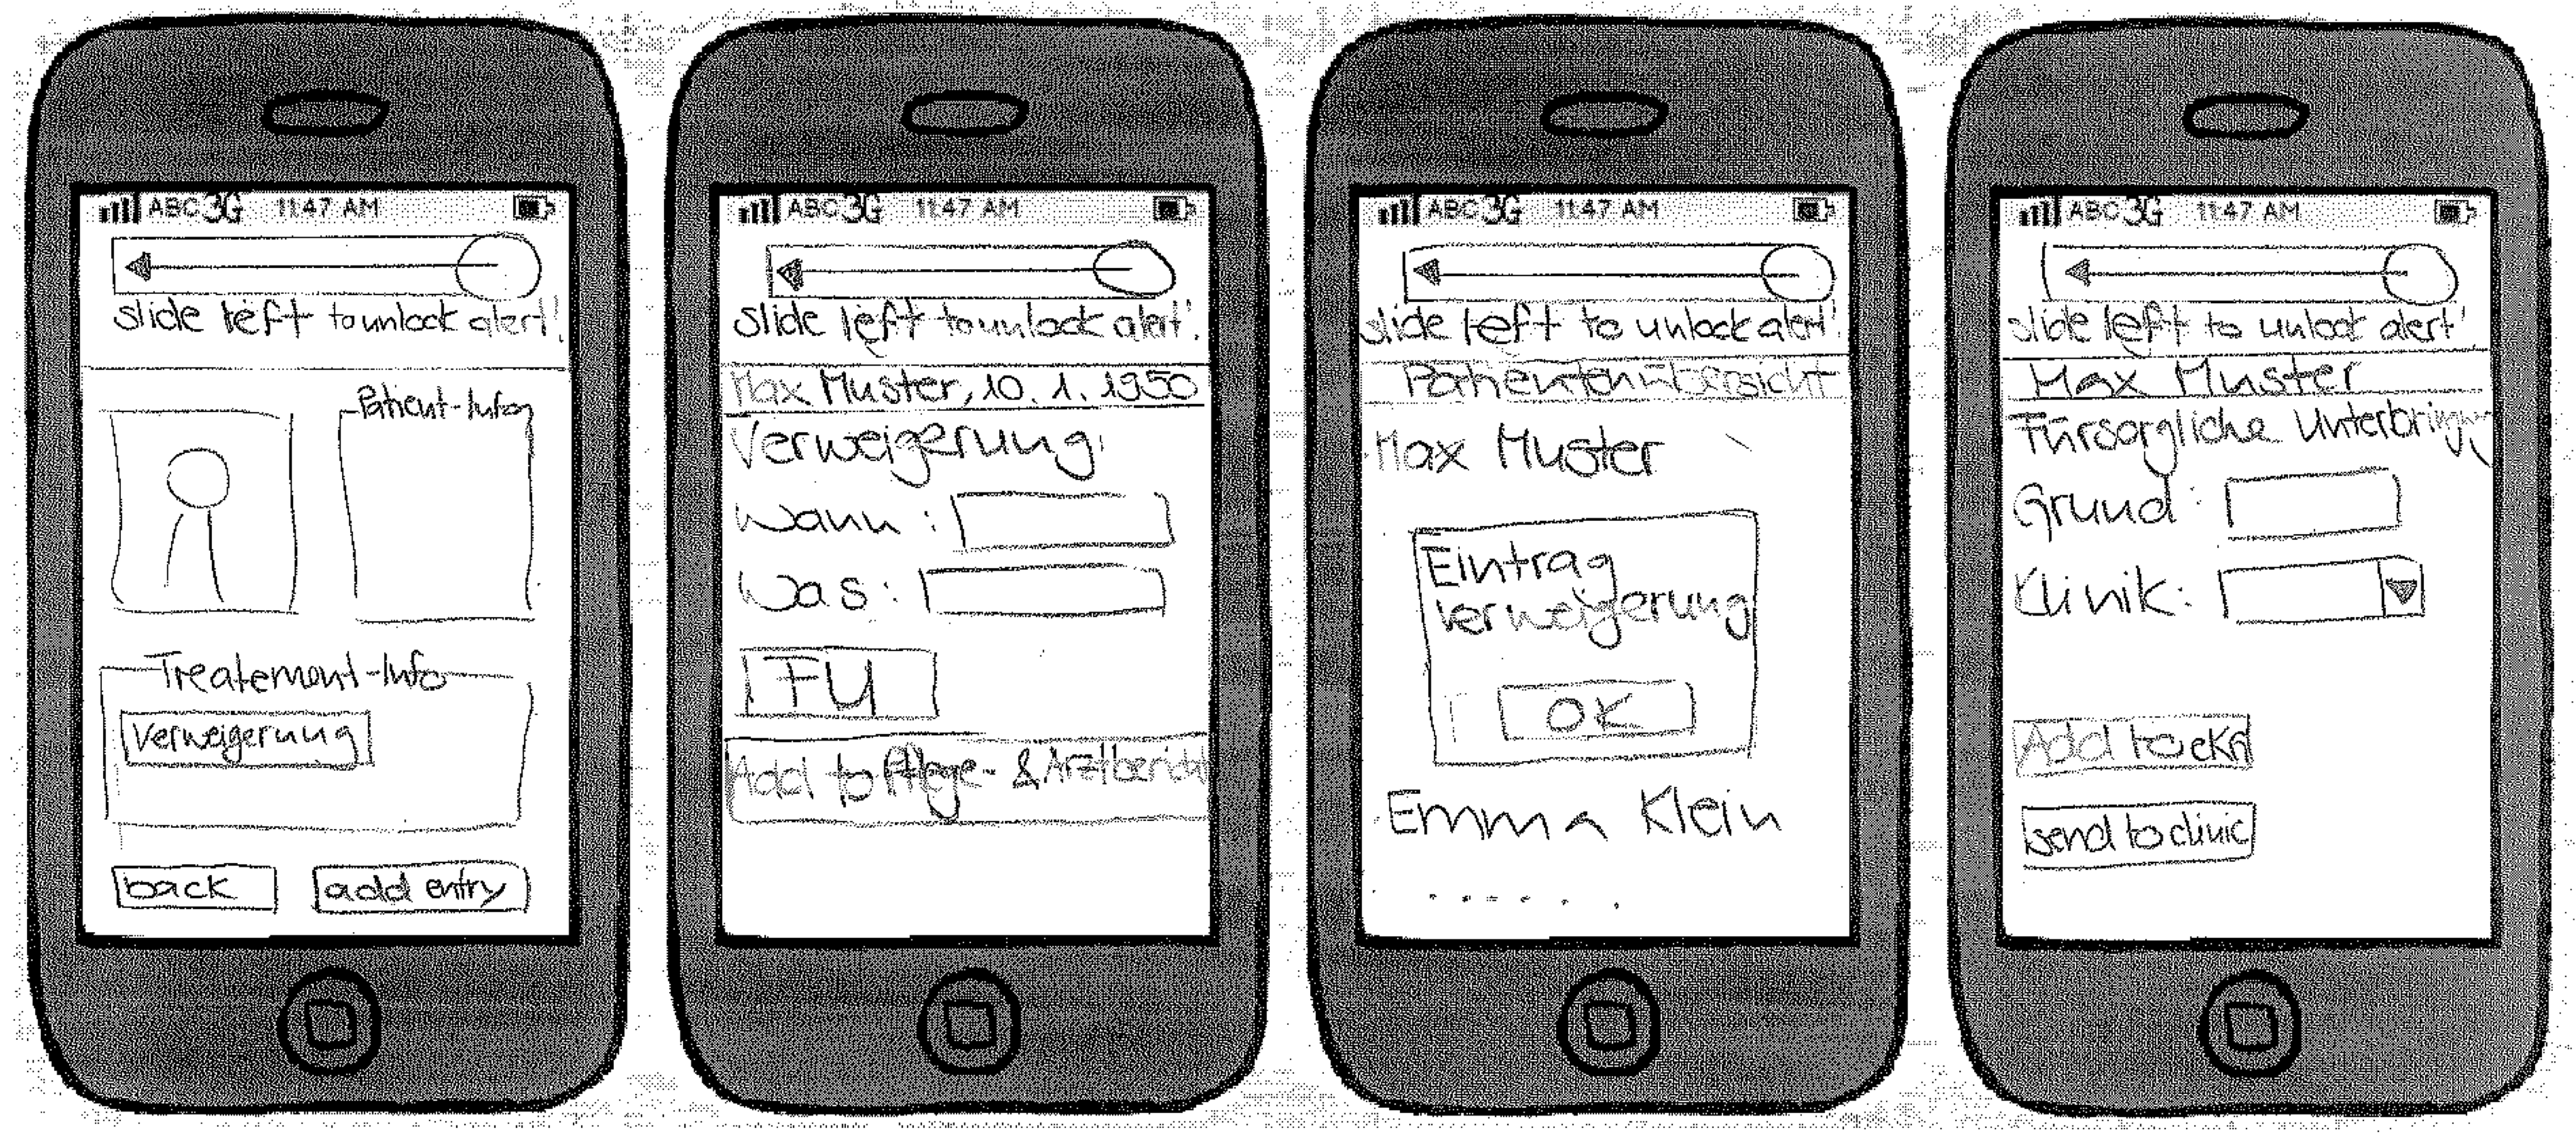 ABC 3G 11:47 AM
slide left to unlock alert!
Patient-Info
Treatement-Info
Verweigerung
back
add entry
ABC 3G 11:47 AM
slide left to unlock alert!
Max Muster, 10. 1. 1950
Verweigerung:
Wann:
Was:
FU
Add to Pflege- & Arztbericht
ABC 3G 11:47 AM
slide left to unlock alert!
Patientenübersicht
Max Muster
Eintrag
verweigerung
OK
Emma Klein
......
ABC 3G 11:47 AM
slide left to unlock alert!
Max Muster
Fürsorgliche Unterbringung
Grund:
Klinik:
Add to
send to clinic